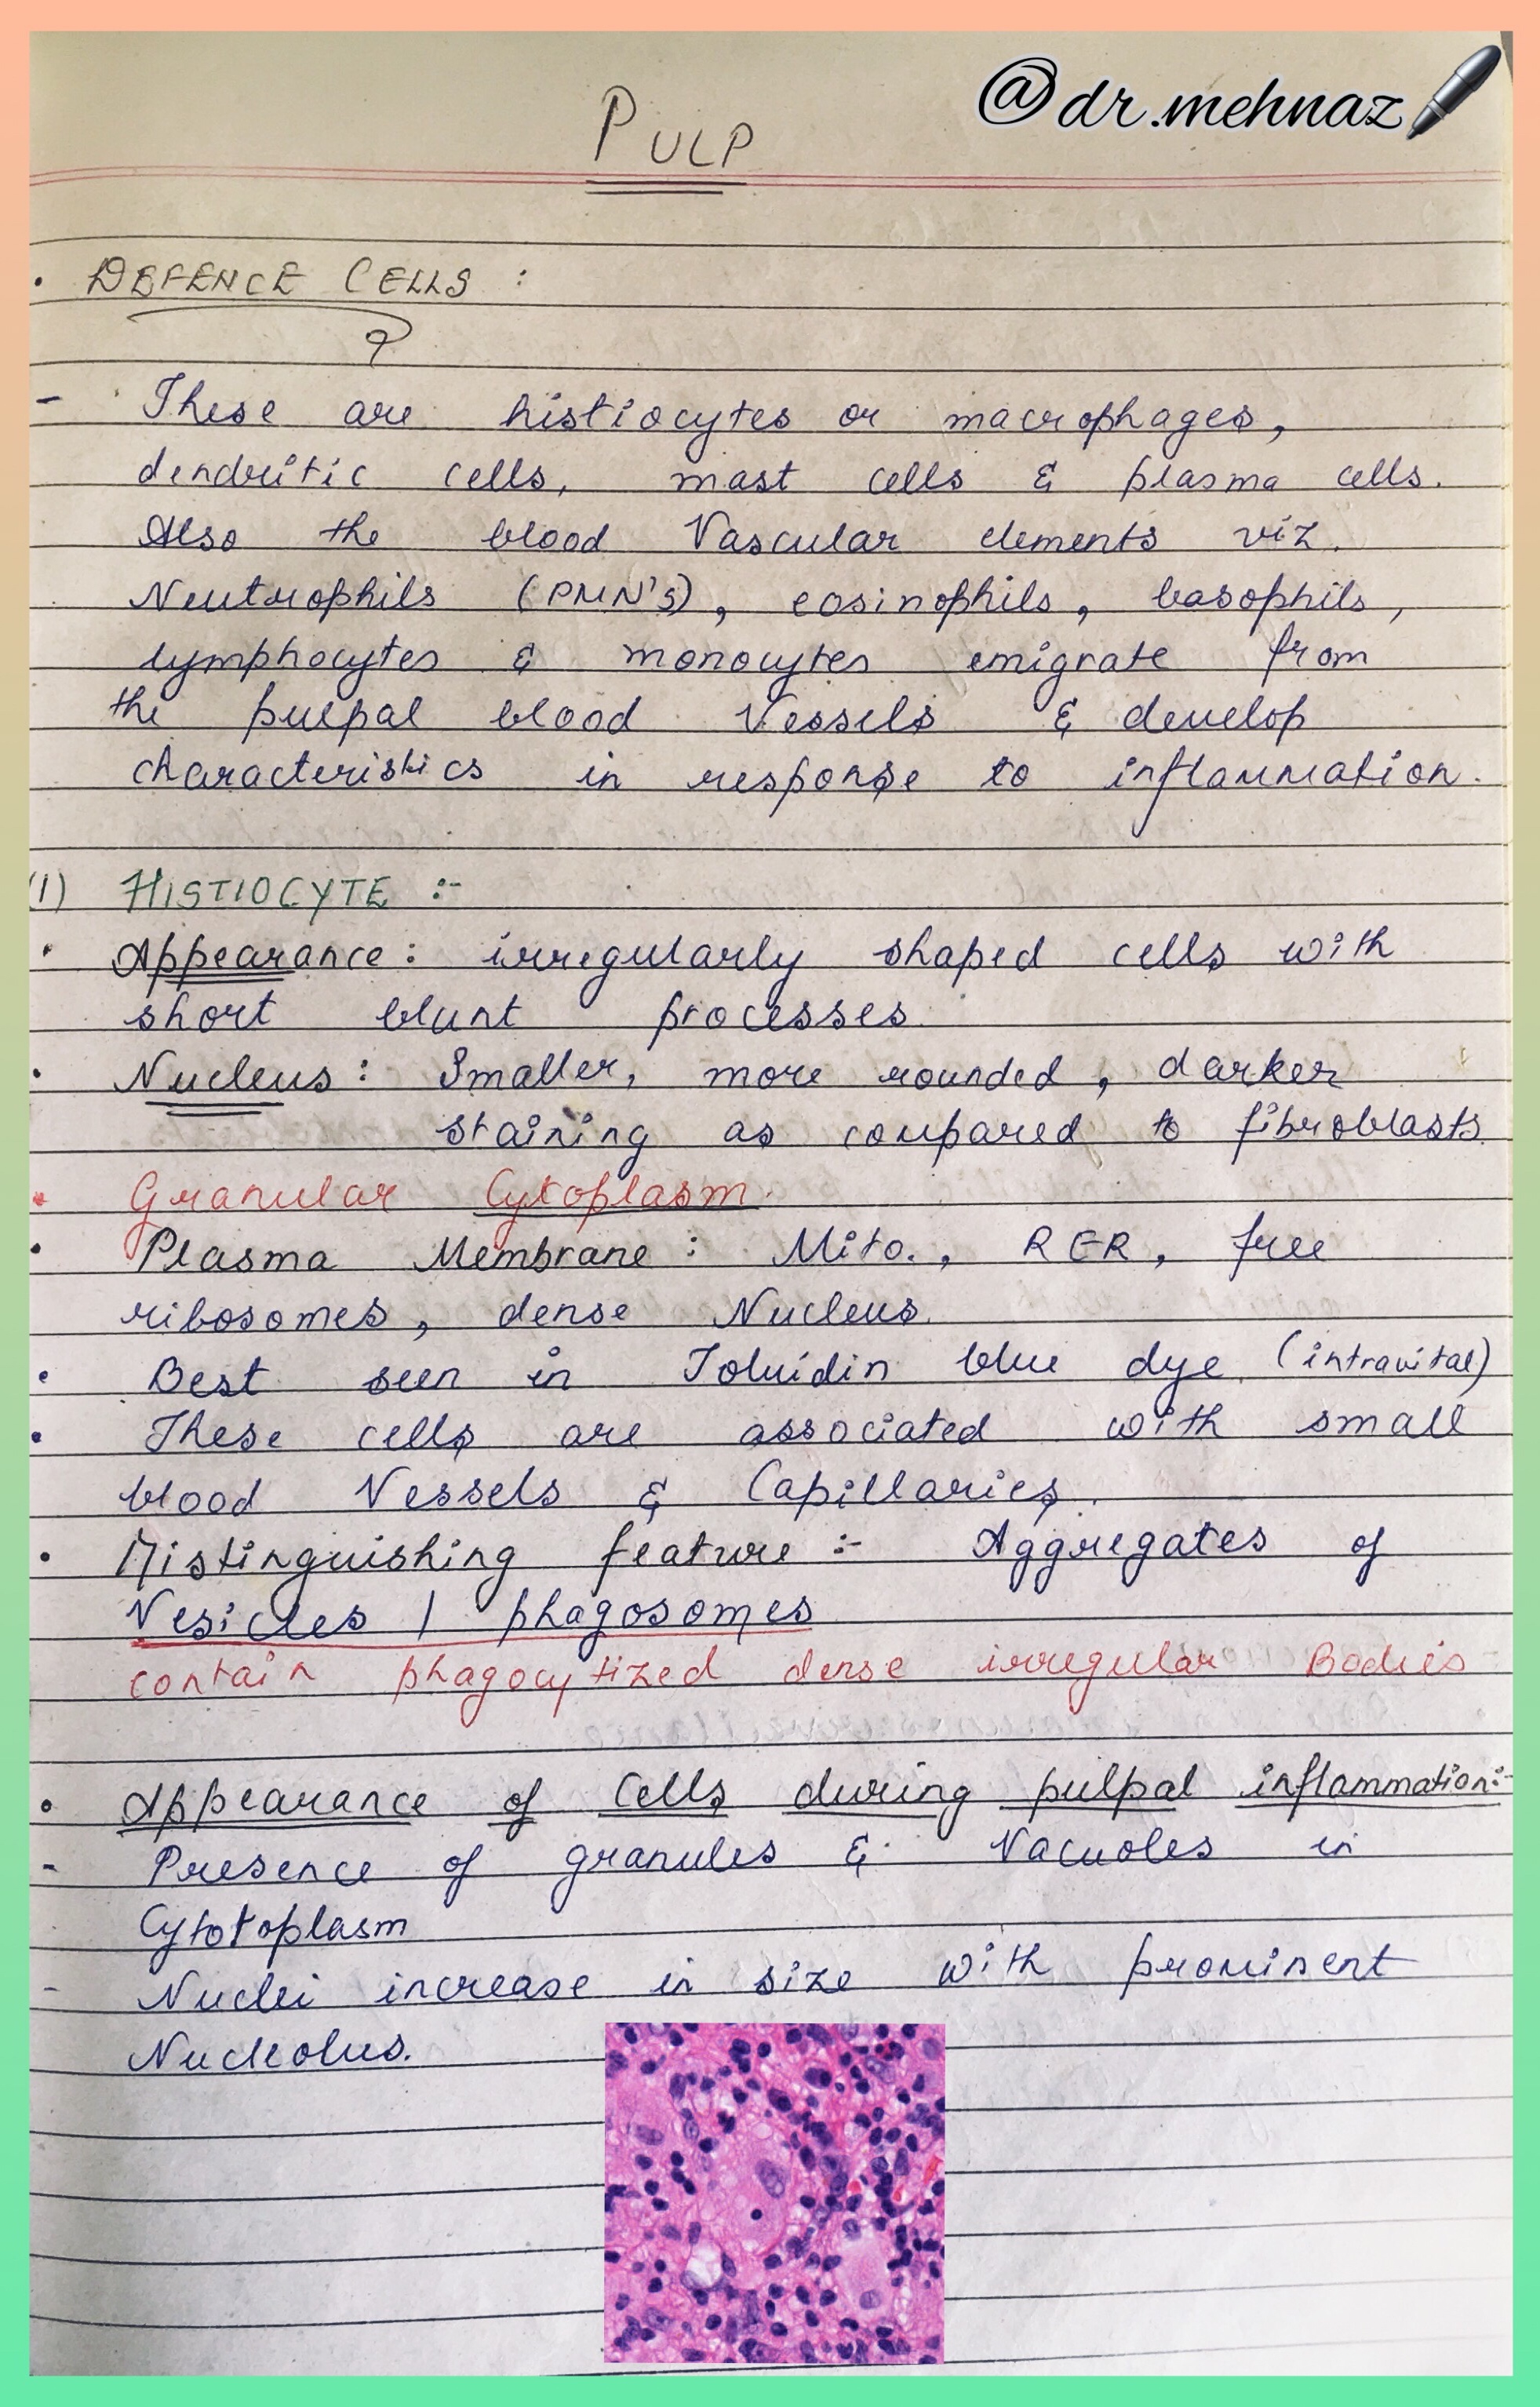 @dr.mehnaz
PULP
• DEFENCE CELLS :
- These are histiocytes or macrophages,
dendritic cells, mast cells & plasma cells.
Also the blood Vascular elements viz.
Neutrophils (PMN's), eosinophils, basophils,
lymphocytes & monocytes emigrate from
the pulpal blood Vessels & develop
characteristics in response to inflammation.
(1) HISTIOCYTE :-
• Appearance: irregularly shaped cells with
short blunt processes.
• Nucleus: Smaller, more rounded, darker
staining as compared to fibroblasts.
• Granular Cytoplasm.
• Plasma Membrane: Mito., RER, free
ribosomes, dense Nucleus.
• Best seen in Toluidin blue dye (intravital)
• These cells are associated with small
blood Vessels & Capillaries.
• Distinguishing feature :- Aggregates of
Vesicles / phagosomes
contain phagocytized dense irregular Bodies
• Appearance of Cells during pulpal inflammation:-
- Presence of granules & Vacuoles in
Cytotoplasm
- Nuclei increase in size with prominent
Nucleolus.